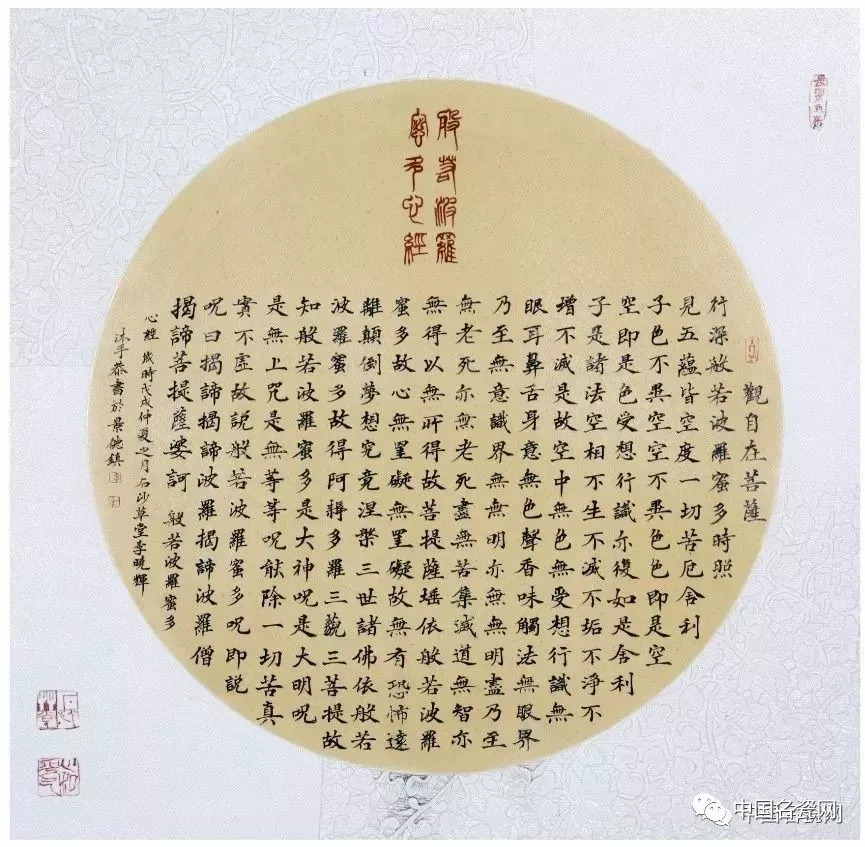 般若波羅
蜜多心經
觀自在菩薩
行深般若波羅蜜多時照
見五蘊皆空度一切苦厄舍利
子色不異空空不異色色即是空
空即是色受想行識亦復如是舍利
子是諸法空相不生不滅不垢不淨不
增不減是故空中無色無受想行識無
眼耳鼻舌身意無色聲香味觸法無眼界
乃至無意識界無無明亦無無明盡乃至
無老死亦無老死盡無苦集滅道無智亦
無得以無所得故菩提薩埵依般若波羅
蜜多故心無罣礙無罣礙故無有恐怖遠
離顛倒夢想究竟涅槃三世諸佛依般若
波羅蜜多故得阿耨多羅三藐三菩提故
知般若波羅蜜多是大神呪是大明呪
是無上咒是無等等呪能除一切苦真
實不虛故說般若波羅蜜多呪即說
呪曰揭諦揭諦波羅揭諦波羅僧
揭諦菩提薩婆訶 般若波羅蜜多
心經 歲時戊戌仲夏之月石沙草堂李曉輝
沐手恭書於景德鎮
中国名瓷网